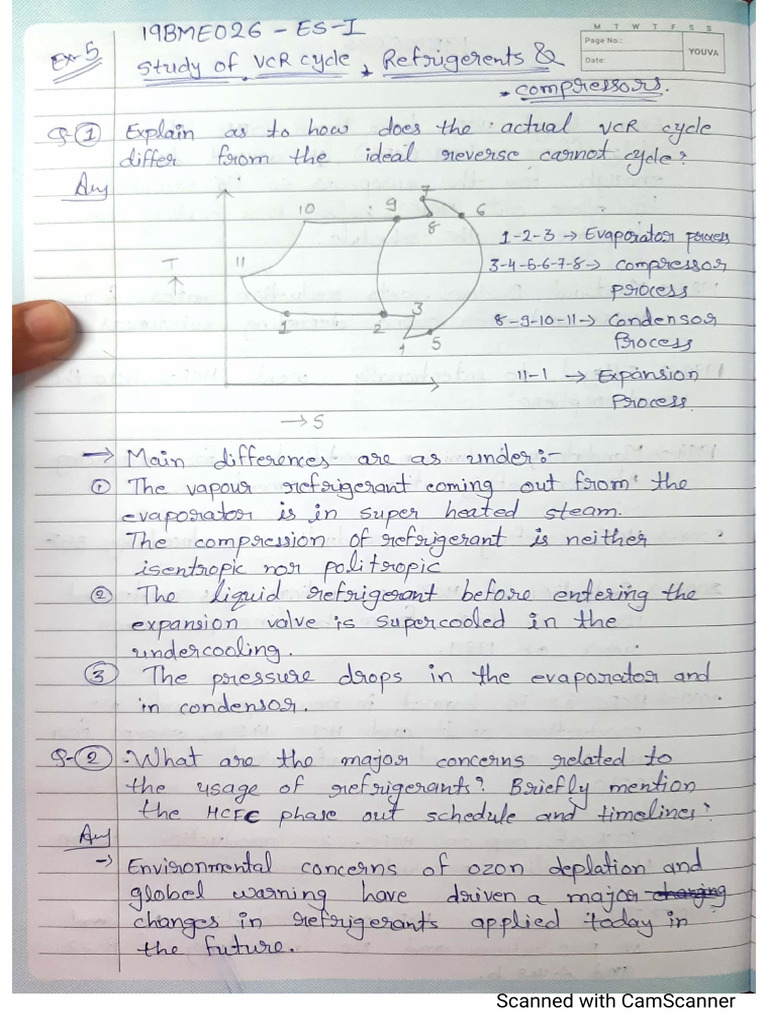 19BME026 - ES-I
M T W T F S S
Page No.:
Date:
YOUVA
Ex-5
Study of VCR cycle, Refrigerents &
compressors.
Q-1 Explain as to how does the actual VCR cycle
differ from the ideal reverse carnot cycle?
Ans
7
10 9 6
8
11
T
1 2 3
4 5
→ S
1-2-3 → Evaporator process
3-4-5-6-7-8 → compressor
process
8-9-10-11 → Condensor
Process
11-1 → Expansion
Process
→ Main differences are as under:-
① The vapour refrigerant coming out from the
evaporator is in super heated steam.
The compression of refrigerant is neither
isentropic nor politropic
② The liquid refrigerant before entering the
expansion valve is supercooled in the
undercooling.
③ The pressure drops in the evaporator and
in condensor.
Q-2 What are the major concerns related to
the usage of refrigerants? Briefly mention
the HCFC phase out schedule and timelines?
Ans
→ Environmental concerns of ozon deplation and
globel warning have driven a major changing
changes in refrigerants applied today in
the future.
Scanned with CamScanner